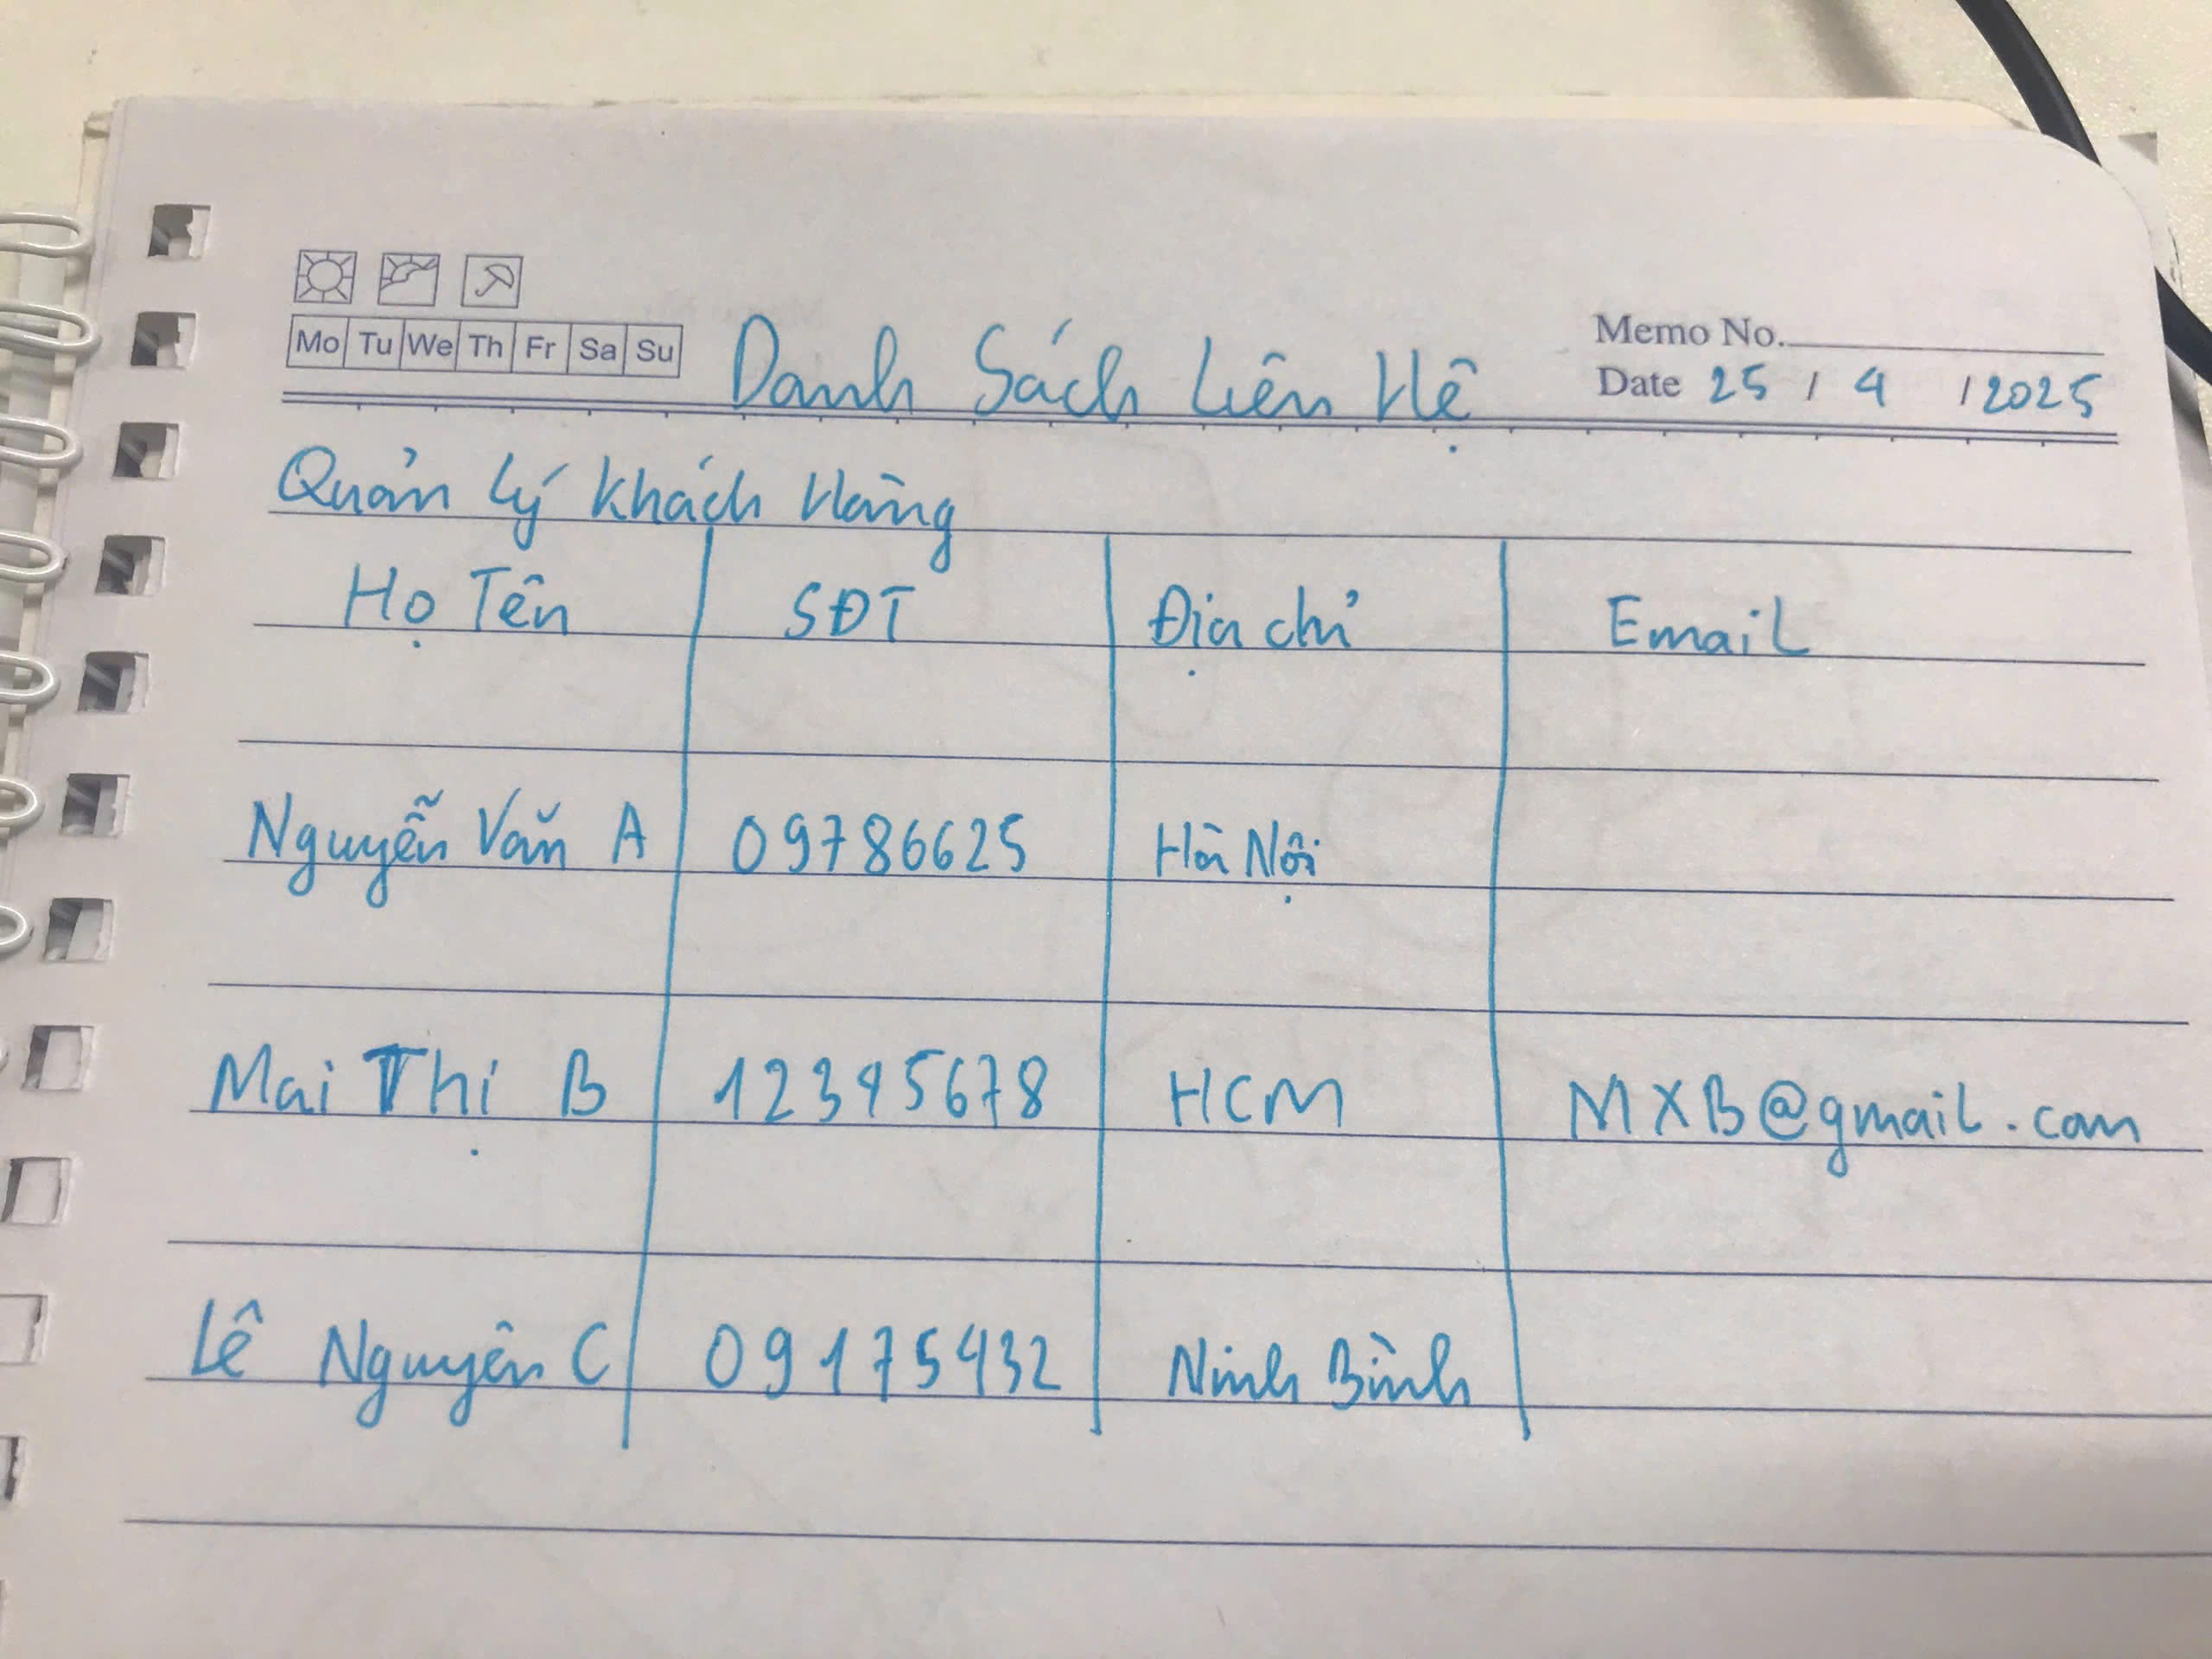 Mo Tu We Th Fr Sa Su
Danh Sách Liên Hệ
Memo No.
Date 25 / 4 / 2025
Quản lý khách Hàng
Họ Tên SĐT Địa chỉ Email
Nguyễn Văn A 09786625 Hà Nội
Mai Thị B 12345678 HCM MXB@gmail.com
Lê Nguyên C 09175432 Ninh Bình